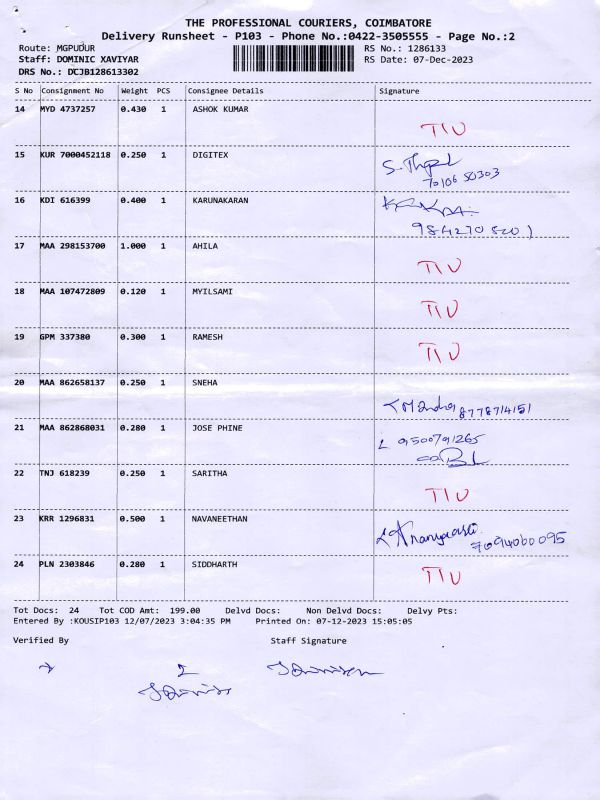 THE PROFESSIONAL COURIERS, COIMBATORE
Delivery Runsheet - P103 - Phone No.:0422-3505555 - Page No.:2
Route: MGPUDUR RS No.: 1286133
Staff: DOMINIC XAVIYAR RS Date: 07-Dec-2023
DRS No.: DCJB128613302
S No Consignment No Weight PCS Consignee Details Signature
14 MYD 4737257 0.430 1 ASHOK KUMAR
TIU
15 KUR 7000452118 0.250 1 DIGITEX
70106 50303
16 KDI 616399 0.400 1 KARUNAKARAN
17 MAA 298153700 1.000 1 AHILA
TIU
18 MAA 107472809 0.120 1 MYILSAMI
TIU
19 GPM 337380 0.300 1 RAMESH
TIU
20 MAA 862658137 0.250 1 SNEHA
8778714151
21 MAA 862868031 0.280 1 JOSE PHINE
9500791265
22 TNJ 618239 0.250 1 SARITHA
TIU
23 KRR 1296831 0.500 1 NAVANEETHAN
7094060095
24 PLN 2303846 0.280 1 SIDDHARTH
TIU
Tot Docs: 24 Tot COD Amt: 199.00 Delvd Docs: Non Delvd Docs: Delvy Pts:
Entered By :KOUSIP103 12/07/2023 3:04:35 PM Printed On: 07-12-2023 15:05:05
Verified By Staff Signature